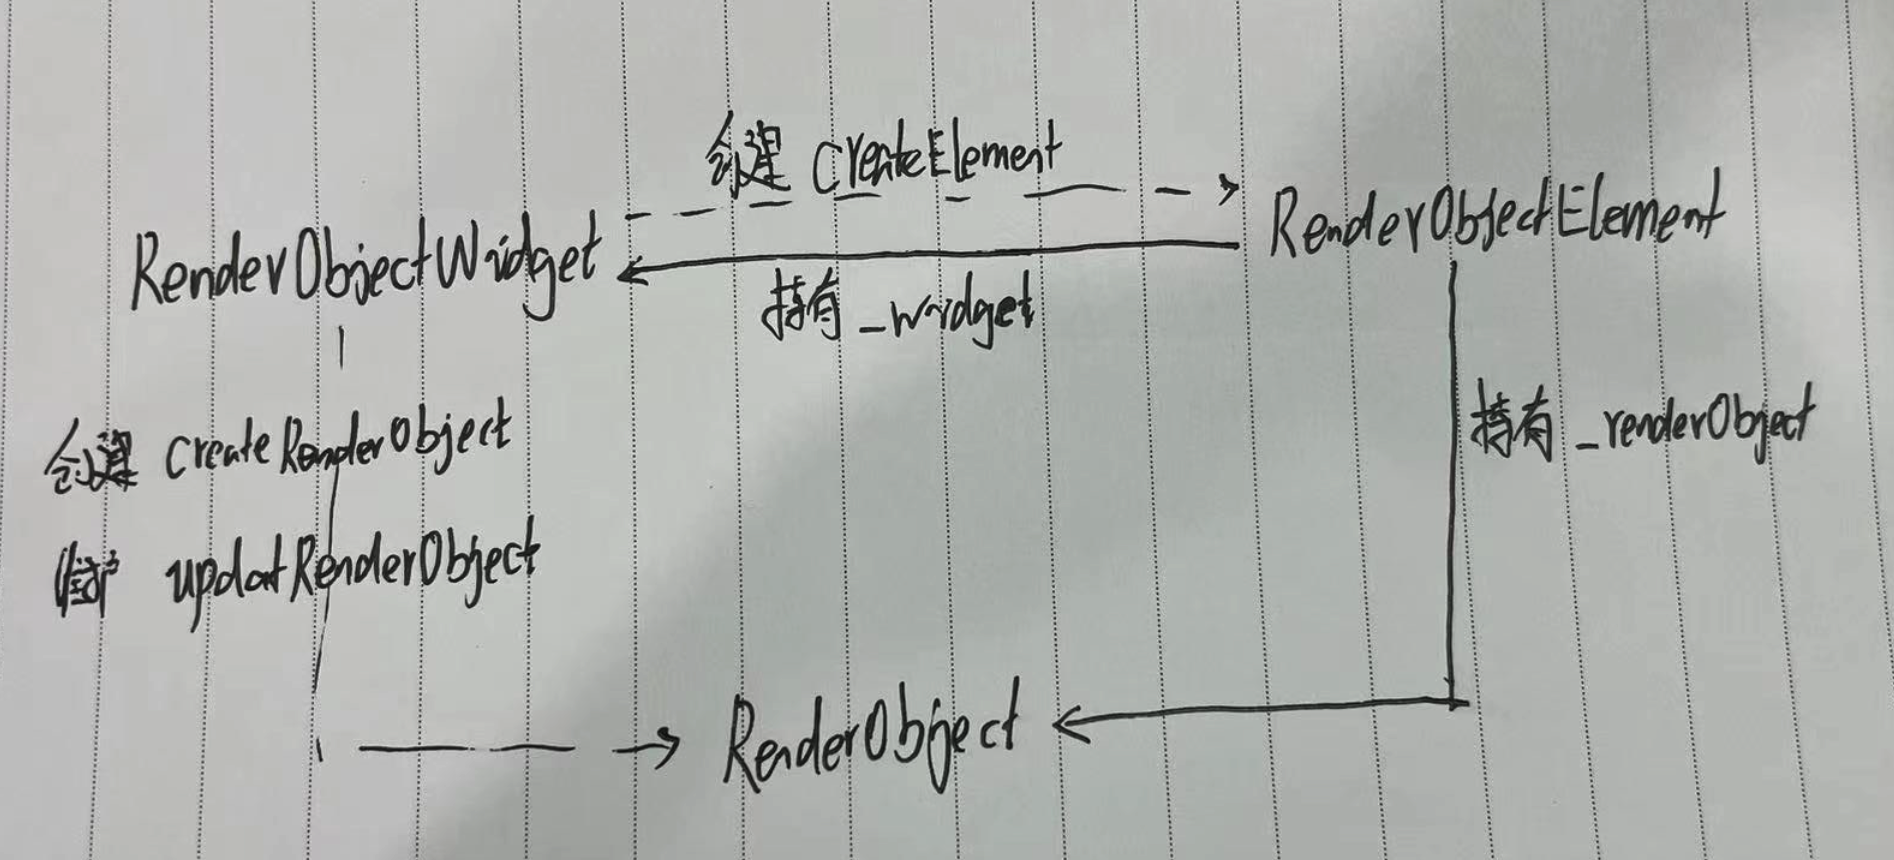 创建 createElement
RenderObjectElement
RenderObjectWidget
持有 _widget
持有 _renderObject
创建 createRenderObject
updatRenderObject
RenderObject